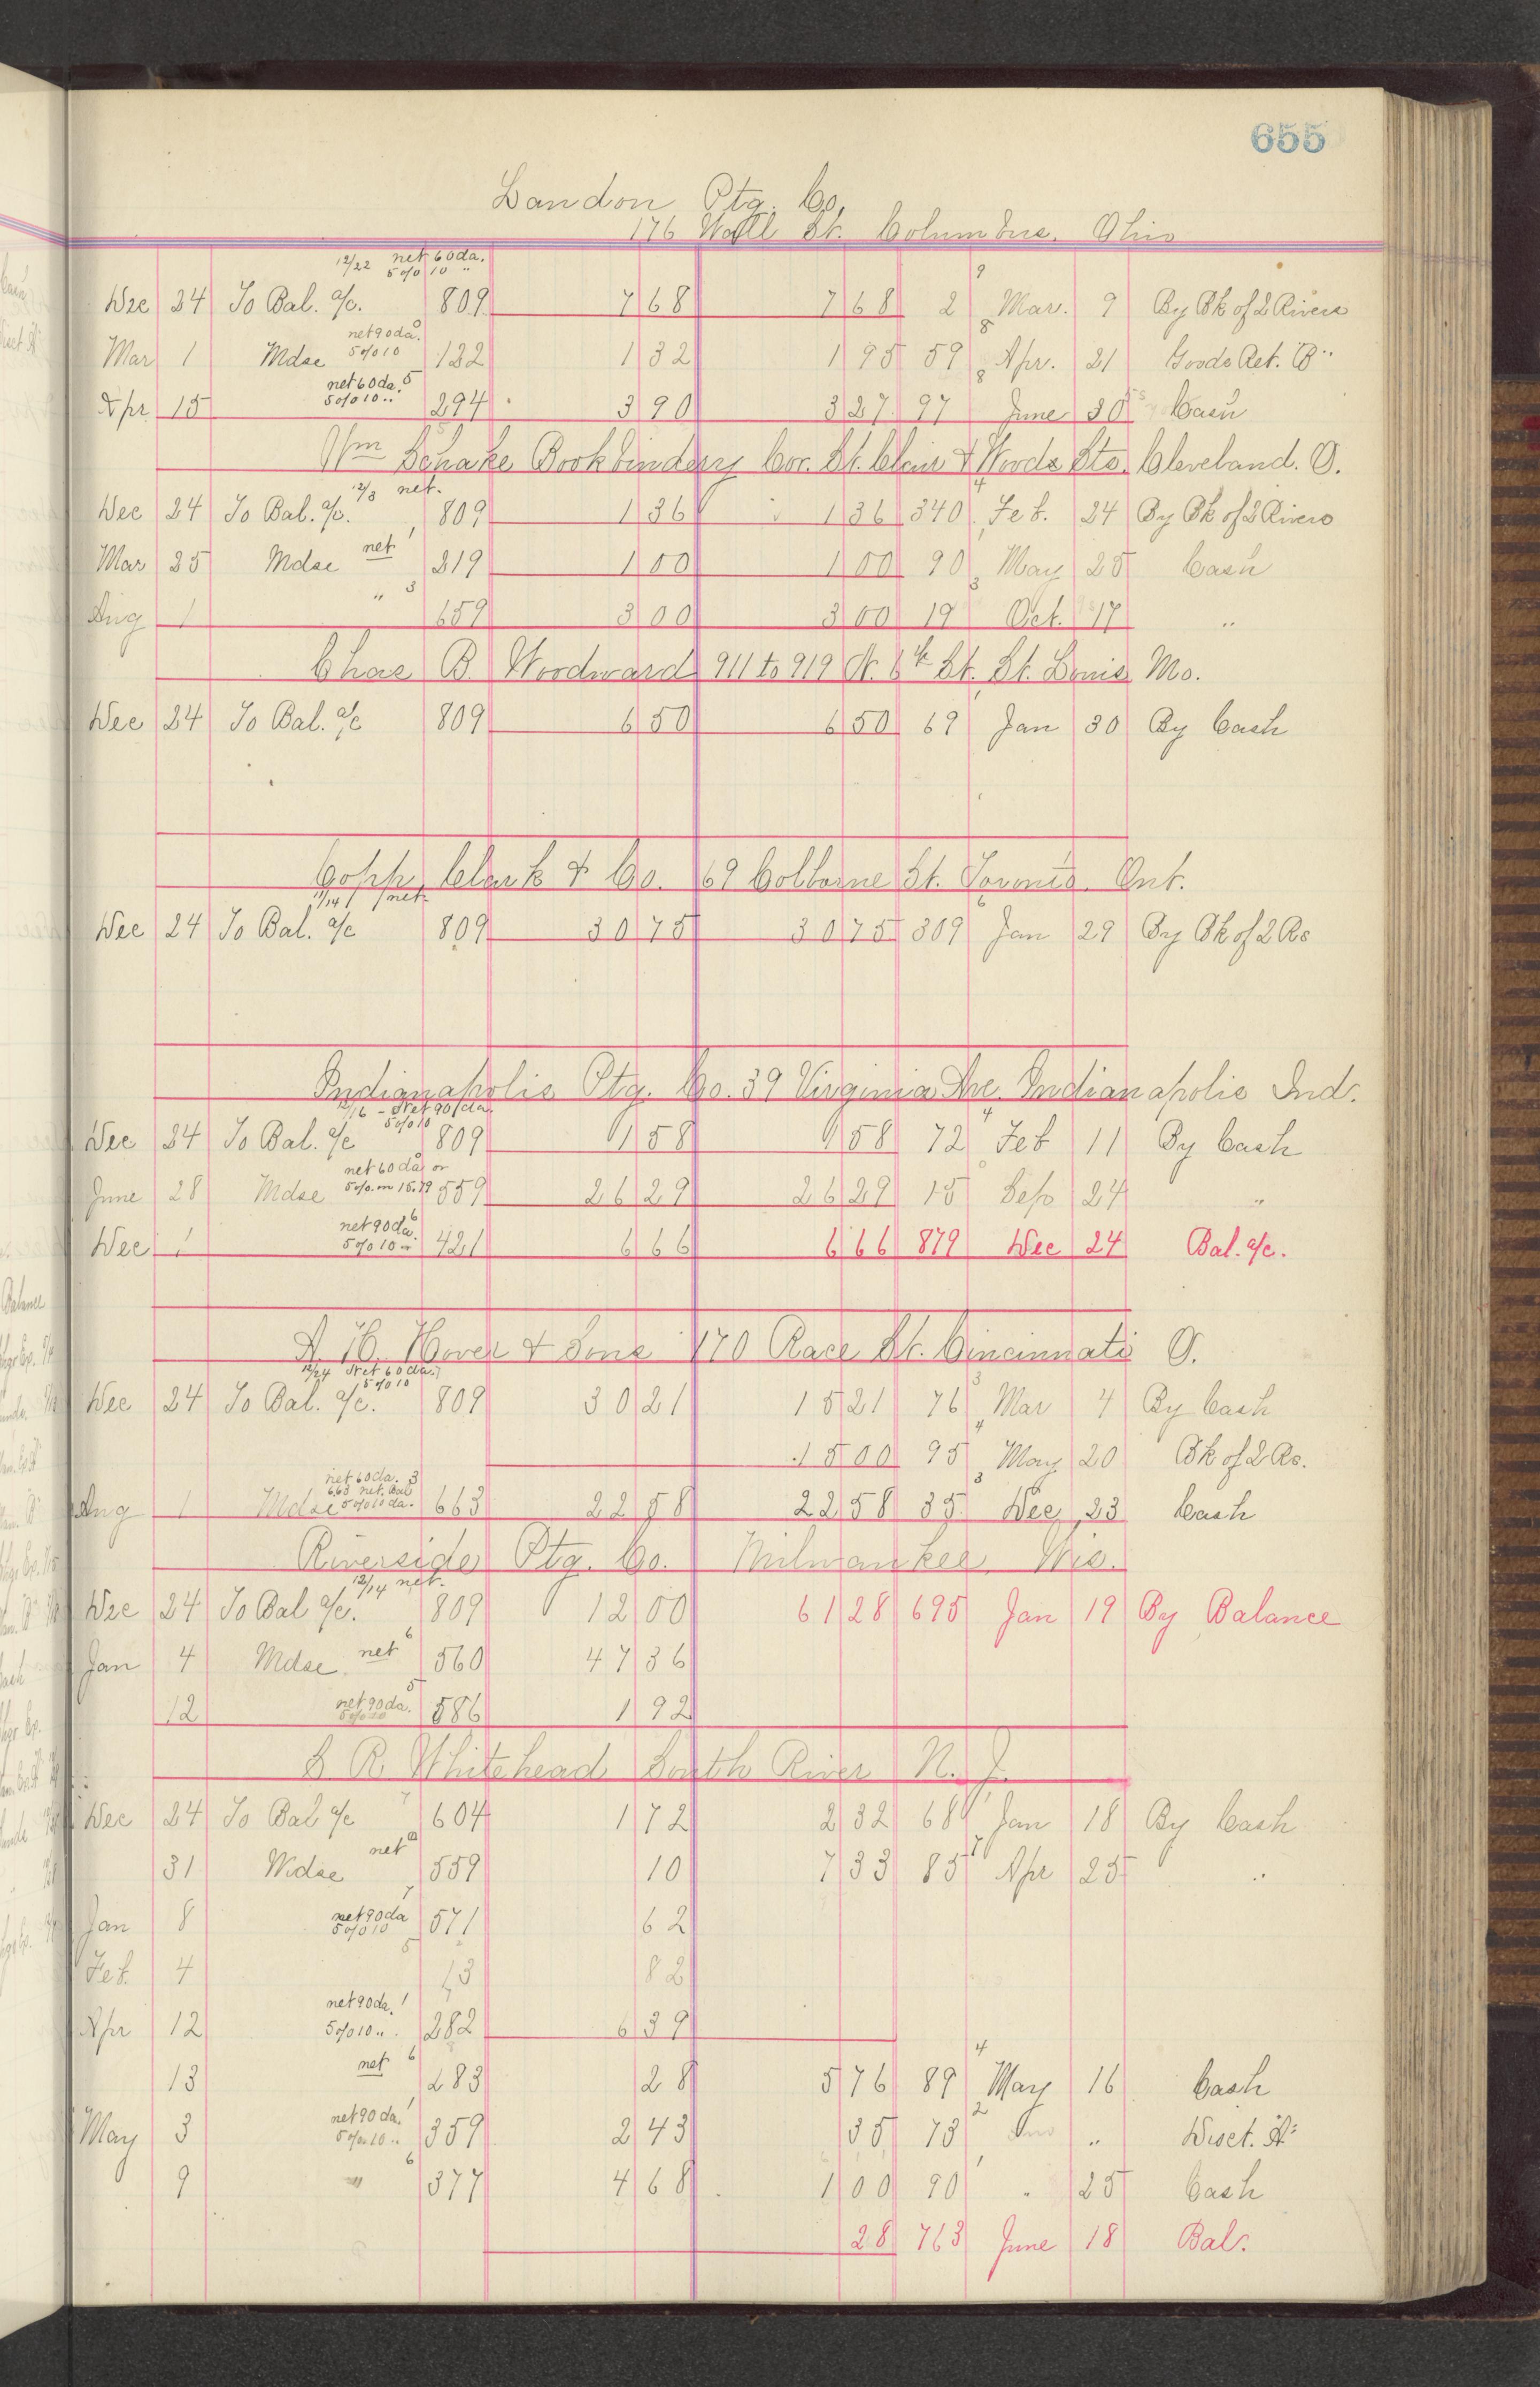 655
Landon Ptg. Co.
176 Wall St. Columbus, Ohio
12/22 net 60 da.
5 0/0 10 "
9
Dec 24 To Bal. a/c. 809 7 68 7 68 2 Mar. 9 By Bk of 2 Rivers
net 90 da. 8
Mar 1 Mdse 5 0/0 10 132 1 32 1 95 59 Apr. 21 Goods Ret. "B"
net 60 da. 5 8
Apr 15 5 0/0 10 " 294 3 90 3 27 97 June 30 Cash
Wm Schake Bookbindery Cor. St. Clair & Woods Sts. Cleveland. O.
12/3 net. 4
Dec 24 To Bal. a/c. 809 1 36 1 36 340 Feb. 24 By Bk of 2 Rivers
Mar 25 Mdse net 1 219 1 00 1 00 90 May 25 Cash
" 3 3
Aug 1 659 3 00 3 00 19 Oct. 17 "
Chas B. Woodward 911 to 919 N. 6th St. St. Louis Mo.
Dec 24 To Bal. a/c 809 6 50 6 50 69 Jan 30 By Cash
Copp, Clark & Co. 69 Colborne St. Toronto. Ont.
12/14 net. 6
Dec 24 To Bal. a/c 809 30 75 30 75 309 Jan 29 By Bk of 2 Rs
Indianapolis Ptg. Co. 39 Virginia Ave. Indianapolis Ind.
12/16 - Net 90 da.
5 0/0 10 4
Dec 24 To Bal. a/c 809 1 58 1 58 72 Feb 11 By Cash
net 60 da or
June 28 Mdse 5 0/0 on 15.79 559 26 29 26 29 15 Sep 24 "
net 90 da. 6
Dec 1 5 0/0 10 " 421 6 66 6 66 879 Dec 24 Bal. a/c.
A H. Hover & Sons 170 Race St. Cincinnati O.
12/24 Net 60 da.
5 0/0 10 3
Dec 24 To Bal. a/c. 809 30 21 15 21 76 Mar 4 By Cash
4
15 00 95 May 20 Bk of 2 Rs.
net 60 da. 3 3
663 net. Bal
Aug 1 Mdse 5 0/0 10 da. 663 22 58 22 58 35 Dec 23 Cash
Riverside Ptg. Co. Milwaukee, Wis.
12/14 net.
Dec 24 To Bal a/c. 809 12 00 61 28 695 Jan 19 By Balance
Jan 4 Mdse net 6 560 47 36
12 net 90 da. 5 586 1 92
5 0/0 10
S R. Whitehead South River N. J.
Dec 24 To Bal a/c 7 604 1 72 2 32 68 Jan 18 By Cash
31 Mdse net 559 10 7 33 85 7 Apr 25 "
Jan 8 net 90 da 7 571 62
5 0/0 10
Feb. 4 5 13 82
net 90 da. 1
Apr 12 5 0/0 10 " 282 6 39
13 net 6 283 28 5 76 89 4 May 16 Cash
May 3 net 90 da. 1 359 2 43 35 73 2 " Disct. "A"
5 0/0 10 "
9 " 6 377 4 68 1 00 90 1 " 25 Cash
28 763 June 18 Bal.